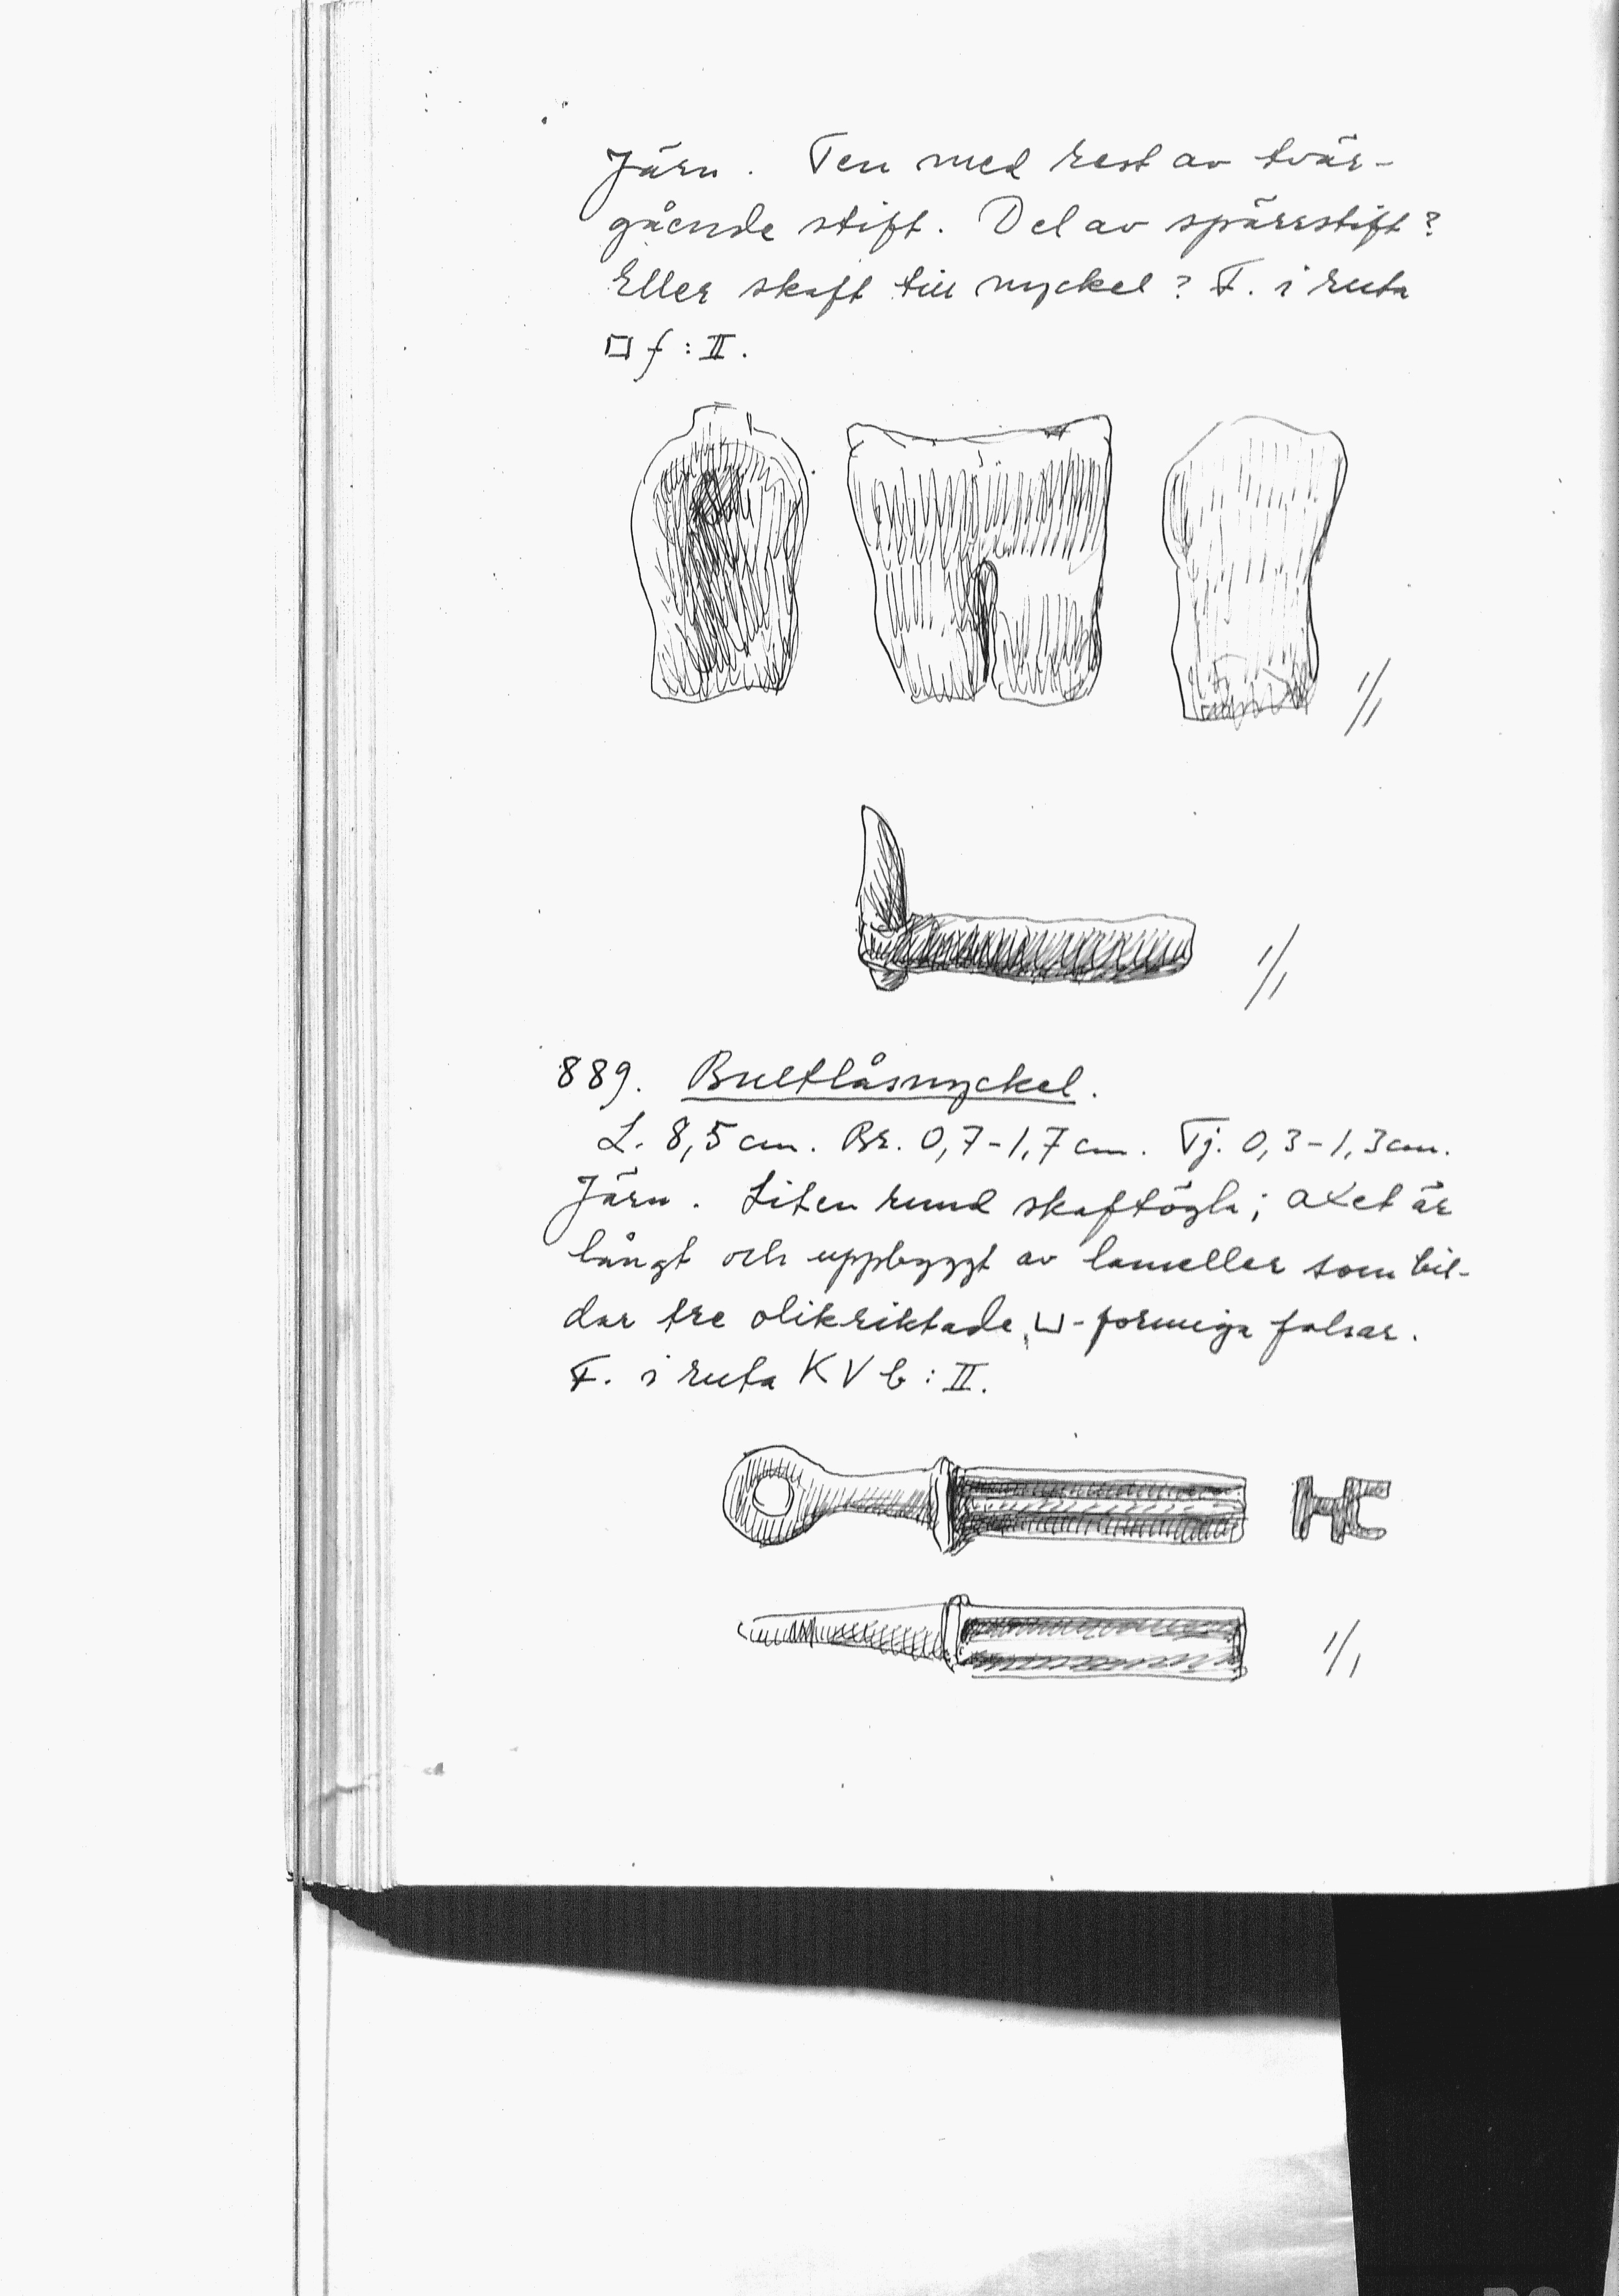 Järn. Ten med rest av tvär-
gående stift. Del av spärrstift?
Eller skaft till nyckel? F. i ruta
□ f : II.
1/1
1/1
889. Bultlåsnyckel.
L. 8,5 cm. Br. 0,7-1,7 cm. Tj. 0,3-1,3 cm.
Järn. Liten rund skaftögla; axet är
långt och uppbyggt av lameller som bil-
dar tre olikriktade ⊔-formiga falsar.
F. i ruta KV b : II.
1/1